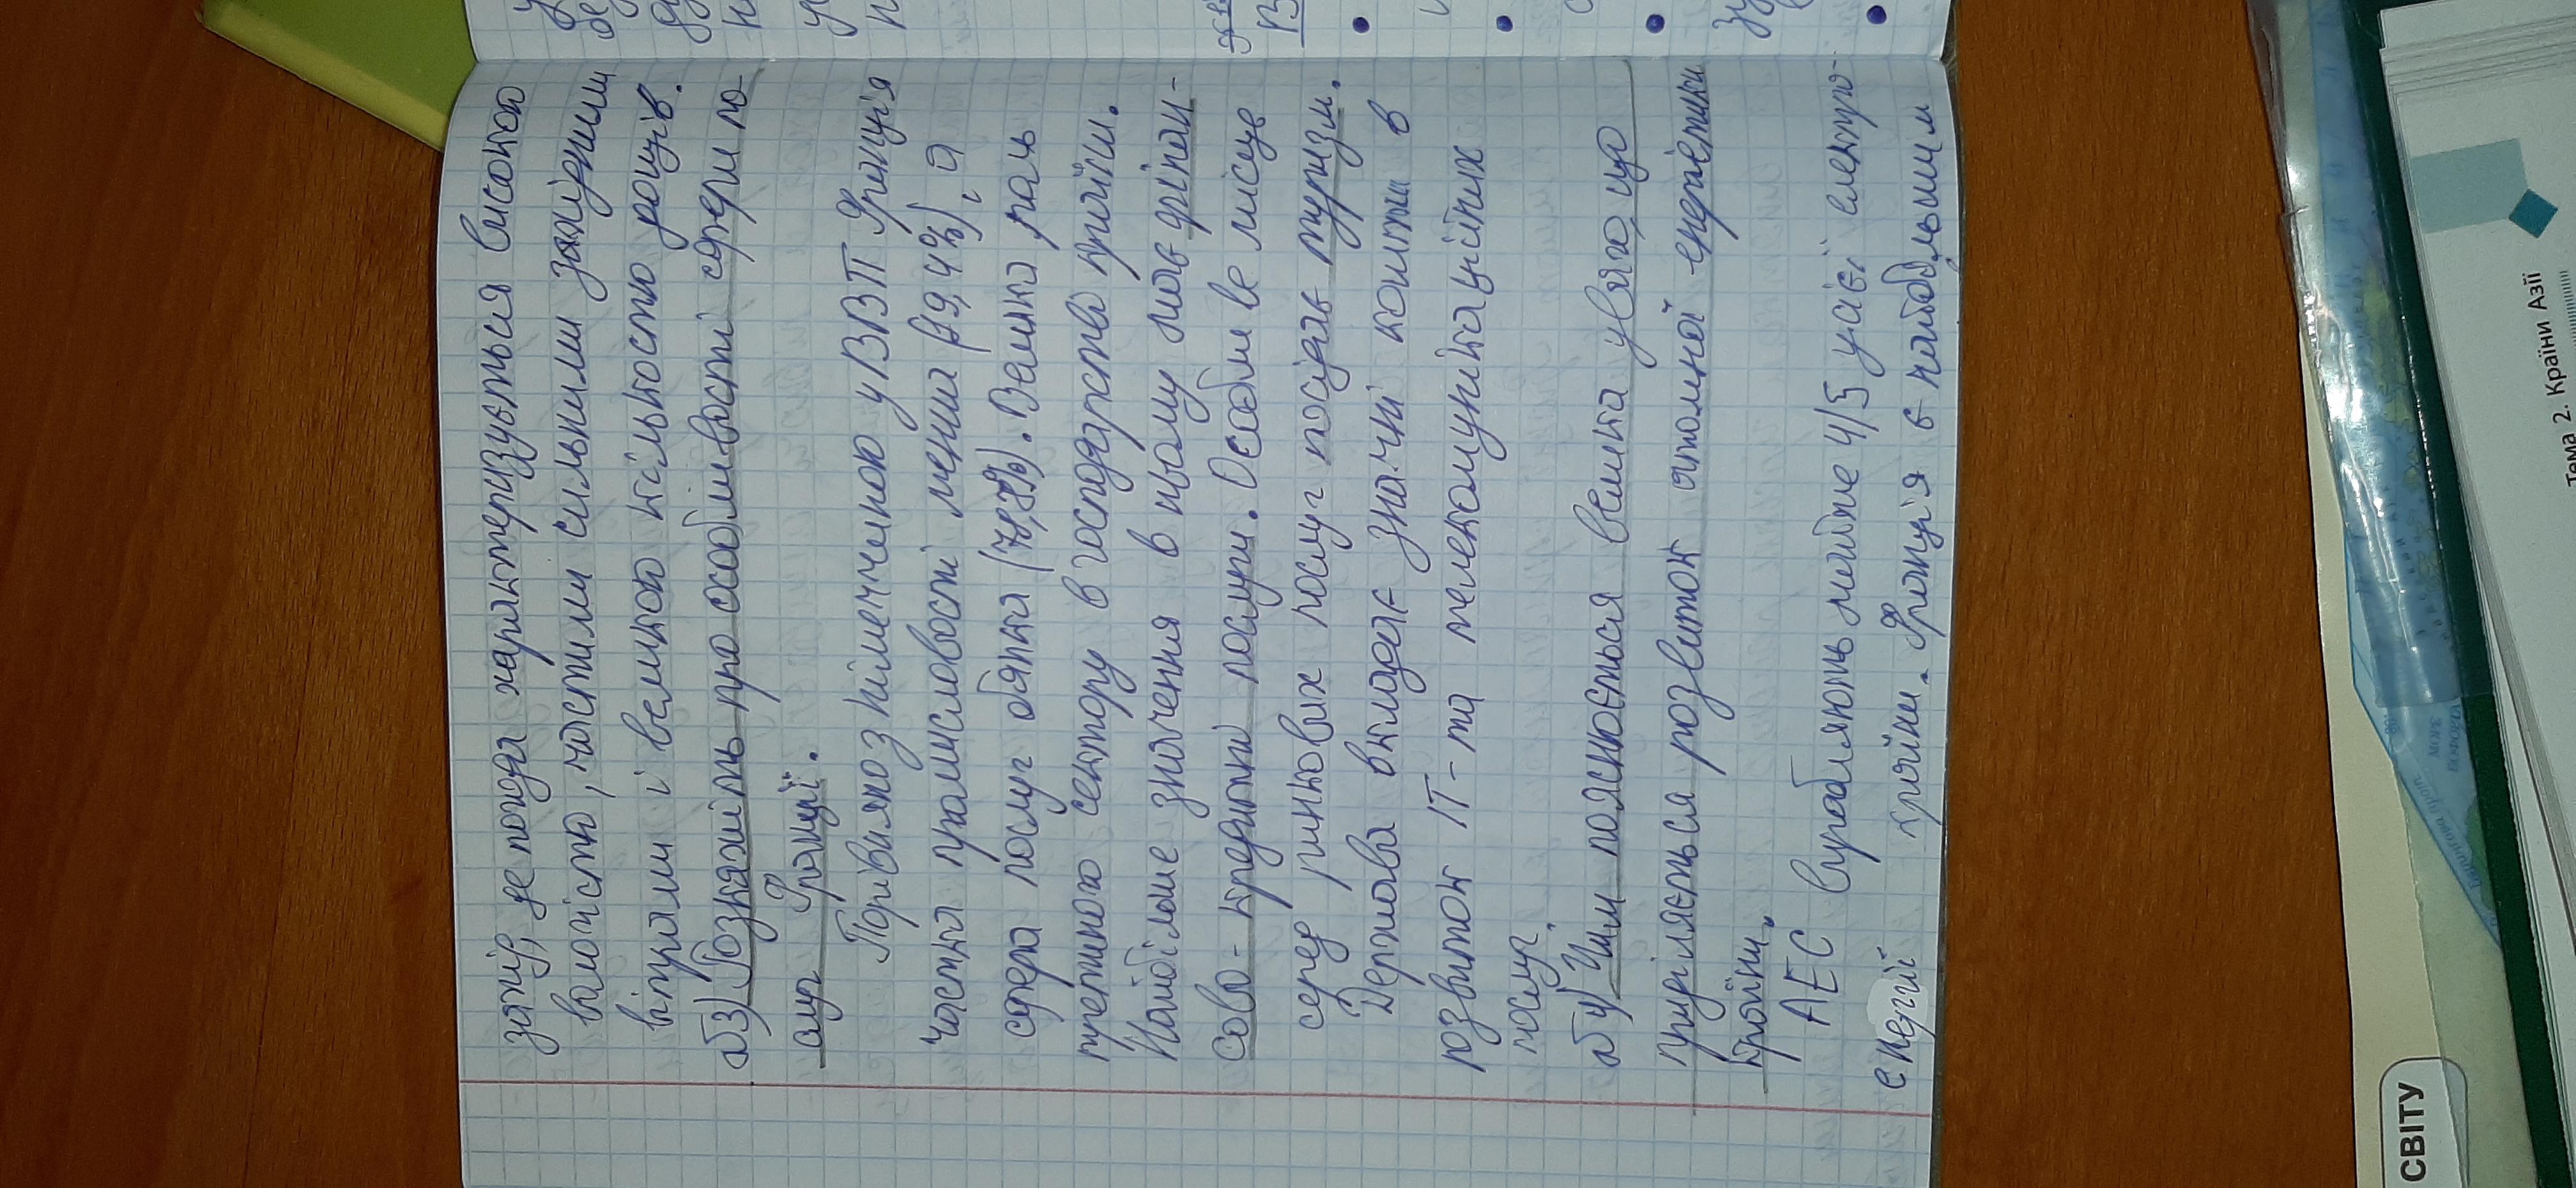 захід, де погода характеризується високою
вологістю, частими сильними західними
вітрами і великою кількістю дощів.
аб3) Розкажіть про особливості сфери по-
слуг Франції.
Порівняно з Німеччиною у ВВП Франція
частка промисловості менша (19,4%), а
сфера послуг обягка (78,8%). Велика роль
третинного сектору в господарстві країни.
Найбільше значення в ньому мають фінан-
сово-кредитні послуги. Особливе місце
серед ринкових послуг посідає туризм.
Держава вкладає значні кошти в
розвиток ІТ- та телекомунікаційних
послуг.
аб4) Чим пояснюється велика увага, що
приділяється розвиток атомної енергетики
країни.
АЕС виробляють майже 4/5 усієї електро-
енергій країни. Франція є найбільшим
СВІТУ
Тема 2. Країни Азії